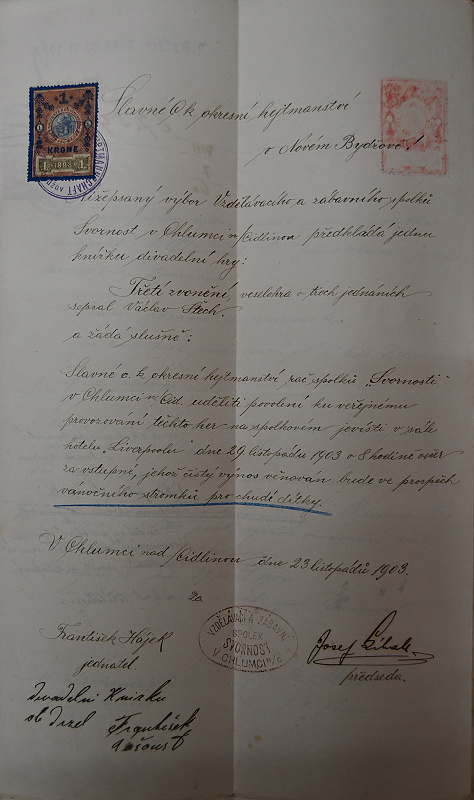 1
KRONE
1 1898 1
Slavné c k okresní hejtmanství
v Novém Bydžově!
Nížepsaný výbor Vzdělávacího a zábavního spolku
Svornost v Chlumci n/Cidlinou předkládá jednu
knížku divadelní hry:
Třetí zvonění, veselohra o třech jednáních
sepsal Václav Štech.
a žádá slušně:
Slavné c. k okresní hejtmanství rač spolku „Svornosti"
v Chlumci n Cid. uděliti povolení ku veřejnému
provozování těchto her na spolkovém jevišti v sále
hotelu „Liverpoolu" dne 29 listopadu 1903 o 8 hodině večer
za vstupné, jehož čistý výnos věnován bude ve prospěch
vánočního stromku pro chudé dítky.
V Chlumci nad Cidlinou dne 23 listopadu 1903.
Za
VZDĚLÁVACÍ A ZÁBAVNÍ
SPOLEK
SVORNOST
V CHLUMCI n/C
František Hájek
jednatel
Josef
předseda.
divadelní Knížku
ob držel František